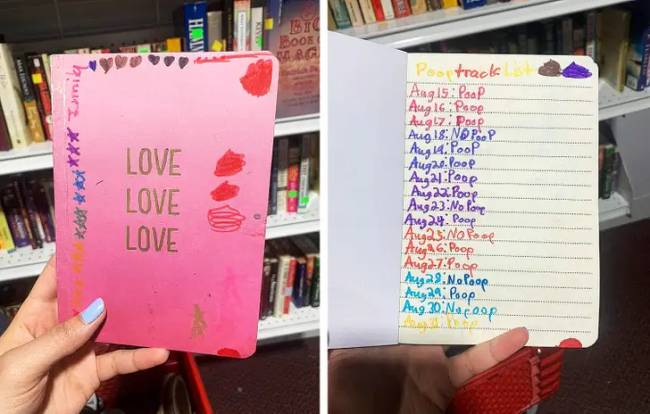 BIG
BOOK
OF
LOVE
LOVE
LOVE
Pooptrack List
Aug 15: PooP
Aug 16: Poop
Aug 17: Poop
Aug 18: NO PooP
Aug 19: PooP
Aug 20: Poop
Aug 21: Poop
Aug 22: Poop
Aug 23: No Poop
Aug 24: Poop
Aug 25: No Poop
Aug 26: Poop
Aug 27: Poop
Aug 28: No Poop
Aug 29: Poop
Aug 30: No poop
Aug 31: Poop